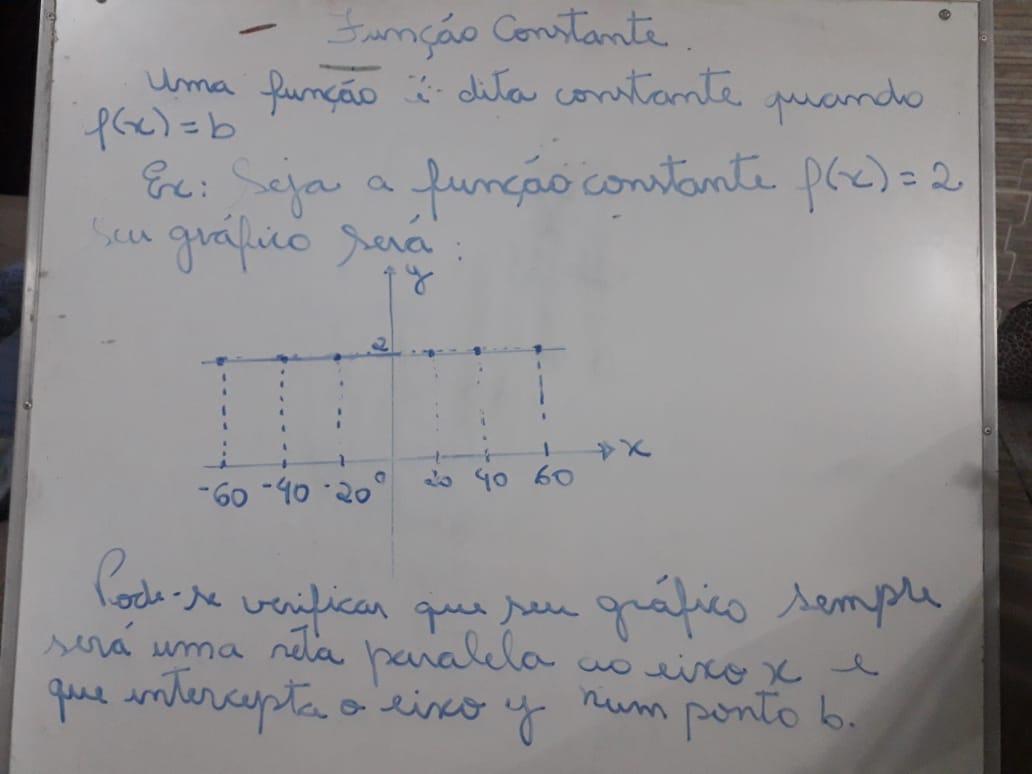 Função Constante.
Uma função é dita constante quando
f(x) = b
Ex: Seja a função constante f(x) = 2
seu gráfico será:
y
2
x
-60 -40 -20 0 20 40 60
Pode-se verificar que seu gráfico sempre
será uma reta paralela ao eixo x e
que intercepta o eixo y num ponto b.